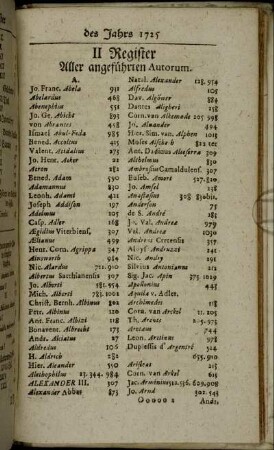 des Jahrs 1725
II Register
Aller angeführten Autorum.
A.
Jo. Franc. Abela 931
Abelardus 468
Abenephius 551
Jo. Ge. Abicht 893
von Abrantes 428
Ismael Abul-Feda 985
Bened. Accoltus 415
Valent. Acidalius 275
Jo. Henr. Acker 22
Acron 281
Bened. Adam 590
Adamannus 830
Leonh. Adami 421
Joseph Addison 197
Adelmus 205
Casp. Adler 168
Ægidius Viterbiens. 307
Ælianus 499
Henr. Corn. Agrippa 347
Ainsworth 984
Nic. Alardus 711. 910
Albertus Saxthianensis 307
Jo. Alberti 551. 954
Mich. Alberti 783. 1002
Christ. Benth. Albinus 302
Petr. Albinus 20
Ant. Franc. Albizi 118
Bonavent. Albrecht 175
Andr. Alciatus 27
Aldredus 106
H. Aldrich 282
Hier. Aleander 550
Alethophilus 23. 344. 984
ALEXANDER III. 307
Alexander Abbas 873
Natal. Alexander 123. 954
Alfredus 105
Dav. Algöwer 884
Dantes Aligheri 158
Corn. van Alkemade 205. 998
Jo. Alnander 494
Hier. Sim. van Alphen 1015
Moses Alscha h 812 tec
Ant. Dadinus Alteserra 309
Althelmus 839
Ambrosius Camaldulens. 307
Euseb. Amort 527. 810
Jo. Amsel 138
Anastasius 308 830
Anderson 75
de S. André 181
Jo. Val. Andreæ 979
Val. Andreæ 1090
Andreas Cretensis 357
Aloys. Andruzzi 191
Nic. Andry 191
Silvius Antonianus 121
Sig. Jac. Apin 375. 1036
Apollonius 443
Aquila v. Adler.
Archimedes 118
Corn. van Arckel 11. 205
Th. Arcues 21. 975
Arctæus 744
Leon. Aretinus 978
Duplessis d'Argentré 514
655. 910
Aristeas 213
Corn. van Arkel
Jac. Arminius 512. 536. 609. 908
Jo. Arnd 502. 543
O o o o o 2 Ando.